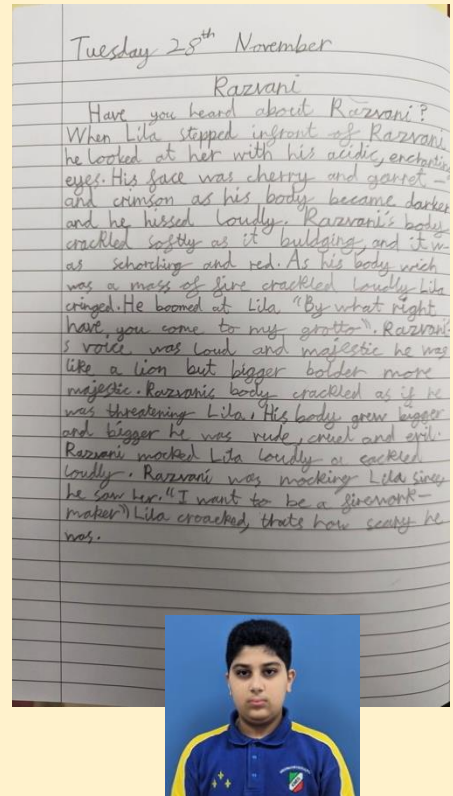 Tuesday 28th November
Razvani
Have you heard about Razvani?
When Lila stepped infront of Razvani
he looked at her with his acidic, enchanting
eyes. His face was cherry and garret -
and crimson as his body became darker
and he hissed loudly. Razvani's body
crackled softly as it buldging, and it w-
as schorching and red. As his body wich
was a mass of fire crackled loudly Lila
cringed. He boomed at Lila "By what right
have you come to my grotto". Razvani-
s voice was loud and majestic he was
like a lion but bigger bolder more
majestic. Razvanis body crackled as if he
was threatening Lila. His body grew bigger
and bigger he was rude, cruel and evil.
Razvani mocked Lila loudly a cackled
loudly. Razvani was mocking Lila since
he saw her. "I want to be a firework-
maker") Lila croacked, thats how scary he
was.